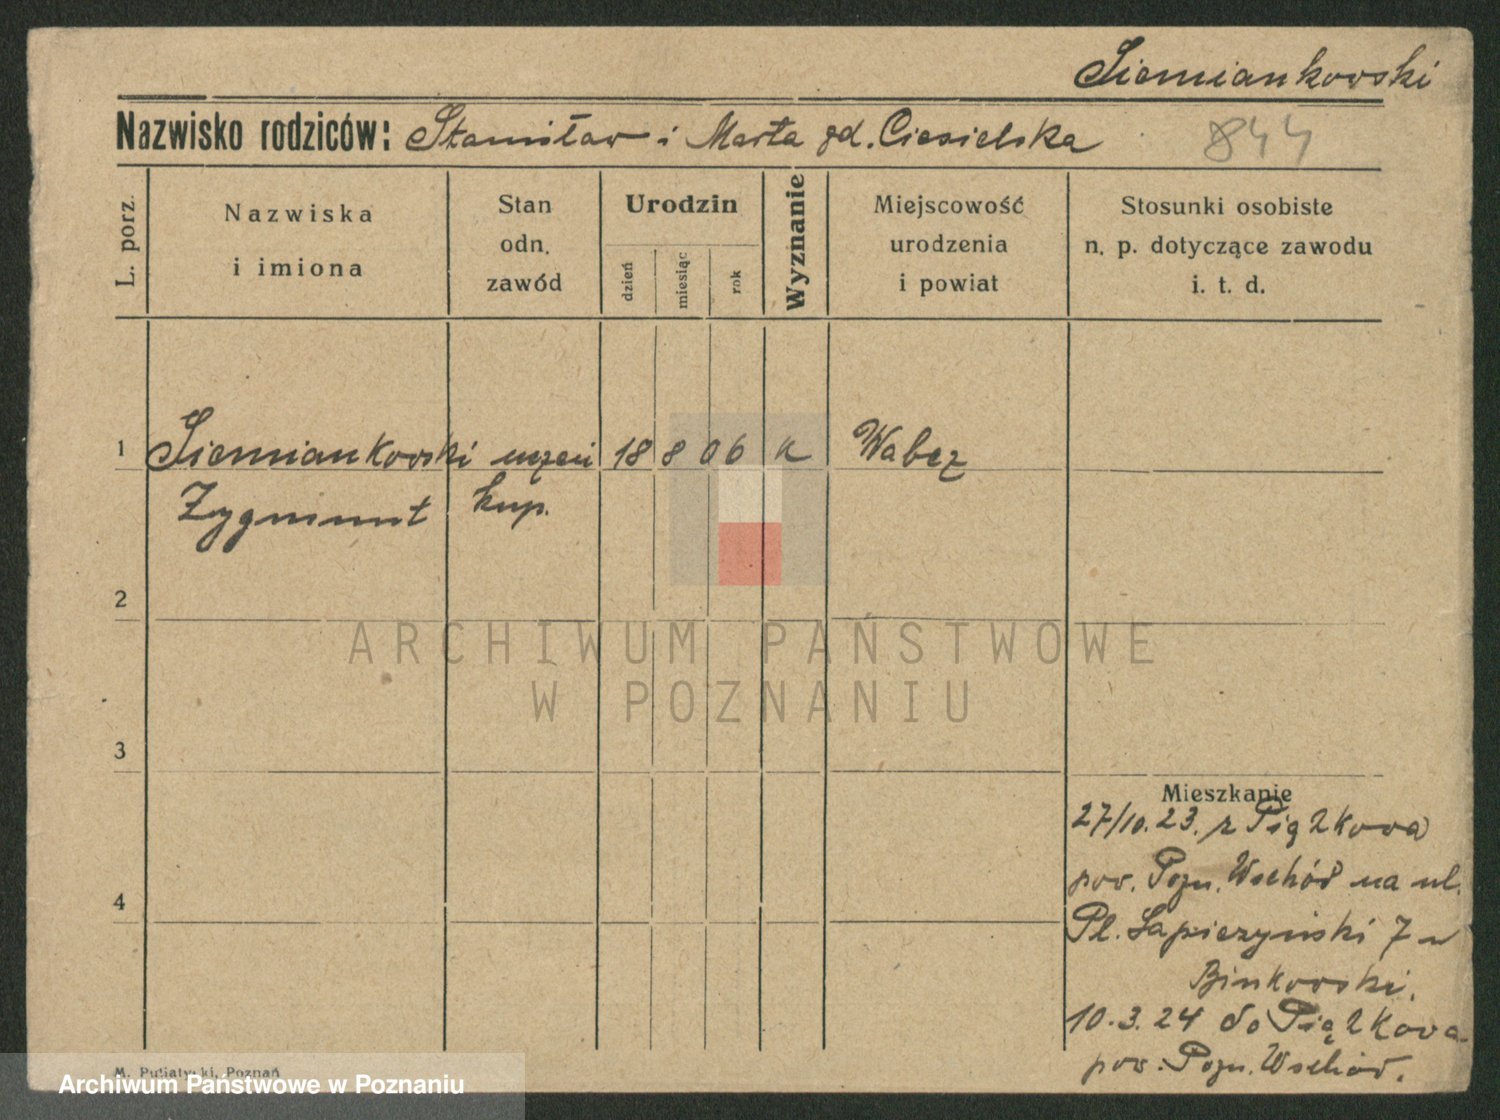 Siemiankowski
Nazwisko rodziców: Stanisław i Marta zd. Ciesielska 844
L. porz.
Nazwiska
i imiona
Stan
odn.
zawód
Urodzin
dzień
miesiąc
rok
Wyznanie
Miejscowość
urodzenia
i powiat
Stosunki osobiste
n. p. dotyczące zawodu
i. t. d.
1 Siemiankowski uczeń 18 8 06 k Wabcz
Zygmunt kup.
2
ARCHIWUM PAŃSTWOWE
W POZNANIU
3
Mieszkanie
27/10.23. z Piątkowa
pow. Pozn. Wschód na ul.
4
Pl. Sapieżyński 7 u
Binkowski.
10.3.24 do Piątkowa
pow. Pozn. Wschód.
M. Putiatycki, Poznań
Archiwum Państwowe w Poznaniu